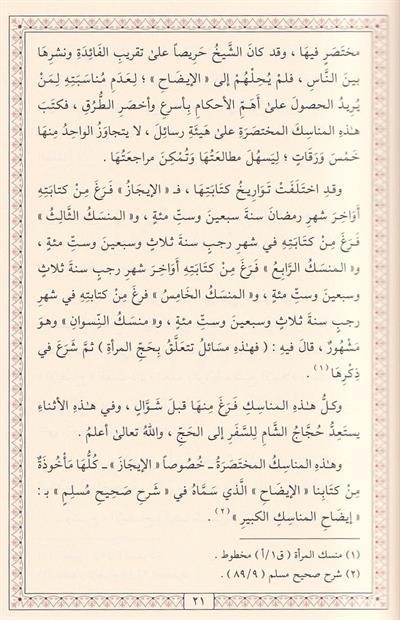 مختَصَرٍ فيهَا ، وقد كانَ الشَّيخُ حَرِيصاً علىٰ تقريبِ الفَائِدَةِ ونشرِهَا
بينَ النَّاسِ ، فلمْ يُحِلْهُمْ إلى « الإيضَاحِ » ؛ لِعدَمِ مُنَاسَبَتِهِ لِمَنْ
يُرِيدُ الحصولَ علىٰ أَهَمِّ الأحكامِ بأسرعِ وأخصَرِ الطُّرُقِ ، فكتَبَ
هٰذهِ المناسِكَ المختصَرَةَ علىٰ هَيئَةِ رسائِلَ ، لا يتجاوَزُ الواحِدُ منهَا
خَمْسَ وَرَقَاتٍ ؛ لِيَسهُلَ مطالعَتُهَا وَتُمْكِنَ مراجعَتُهَا .
وقدِ اختَلَفَتْ تَوَارِيخُ كتابَتِهَا ، فـ « الإيجَازُ » فَرَغَ مِنْ كتابَتِهِ
أَوَاخِرَ شهرِ رمضَانَ سنةَ سبعينَ وستِّ مئةٍ ، و« المنسَكُ الثَّالِثُ »
فَرَغَ مِنْ كتابَتِهِ في شهرِ رجبٍ سنةَ ثلاثٍ وسبعينَ وستِّ مئةٍ ،
و« المنسَكُ الرَّابِعُ » فَرَغَ مِنْ كتابَتِهِ أَوَاخِرَ شهرِ رجبٍ سنةَ ثلاثٍ
وسبعينَ وستِّ مئةٍ ، و« المنسَكُ الخَامِسُ » فرغَ مِنْ كتابتِهِ في شهرِ
رجبٍ سنةَ ثلاثٍ وسبعينَ وستِّ مئةٍ ، و« منسَكُ النِّسوانِ » وهوَ
مَشْهُورٌ ، قالَ فيهِ : ( فهٰذهِ مسَائلُ تتعلَّقُ بِحَجِّ المرأةِ ) ثمَّ شَرَعَ في
ذِكْرِهَا (١) .
وكلُّ هٰذهِ المناسِكِ فَرَغَ مِنهَا قبلَ شَوَّالٍ ، وفي هٰذهِ الأثناءِ
يستَعِدُّ حُجَّاجُ الشَّامِ للسَّفَرِ إلى الحَجِّ ، واللهُ تعالىٰ أعلمُ .
وهٰذهِ المناسِكُ المختَصَرَةُ ـ خُصُوصاً « الإيجَازَ » ـ كُلُّهَا مَأْخُوذَةٌ
مِنْ كتابِنا « الإيضَاحِ » الَّذي سَمَّاهُ في « شَرحِ صَحيحِ مُسلِمٍ » بـ :
« إيضَاحِ المناسِكِ الكبيرِ » (٢) .
(١) منسك المرأة ( ق١/أ ) مخطوط .
(٢) شرح صحيح مسلم ( ٨٩/٩ ) .
٢١